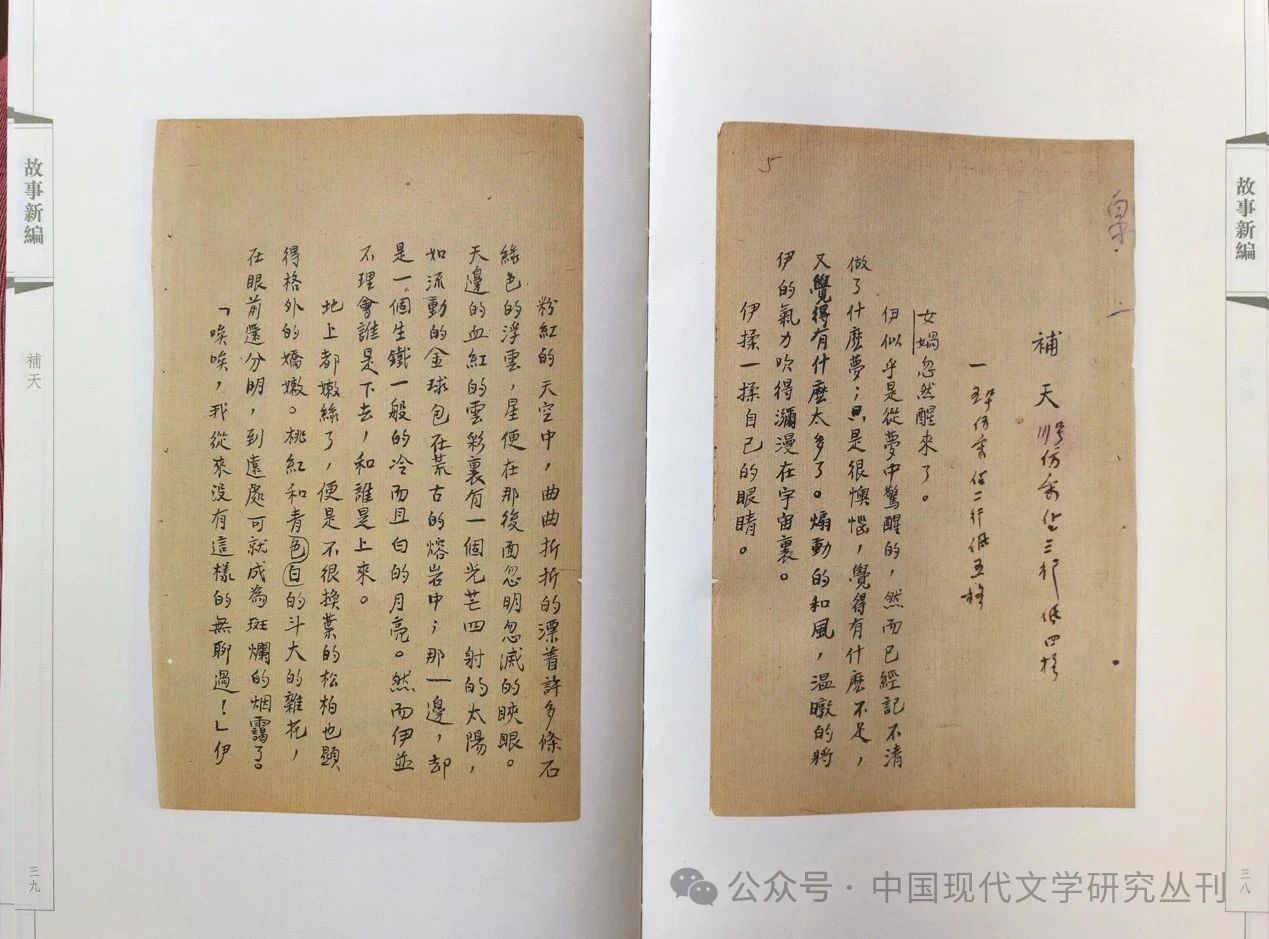 故事新編
三八
5
補天
川号仿宋佔三行低四格
一
女媧忽然醒來了。
伊似乎是從夢中驚醒的，然而已經記不清
做了什麽夢；只是很懊惱，覺得有什麽不足，
又覺得有什麽太多了。煽動的和風，温暾的將
伊的氣力吹得瀰漫在宇宙裏。
伊揉一揉自己的眼睛。
粉紅的天空中，曲曲折折的漂着許多條石
綠色的浮雲，星便在那後面忽明忽滅的䀹眼。
天邊的血紅的雲彩裏有一個光芒四射的太陽，
如流動的金球包在荒古的熔岩中；那一邊，却
是一個生鐵一般的冷而且白的月亮。然而伊並
不理會誰是下去，和誰是上來。
地上都嫩綠了，便是不很換葉的松柏也顯
得格外的嬌嫩。桃紅和青色白的斗大的雜花，
在眼前還分明，到遠處可就成為斑斕的烟靄了。
「唉唉，我從來没有這樣的無聊過！」伊
故事新編
補天
三九
公众号·中国现代文学研究丛刊